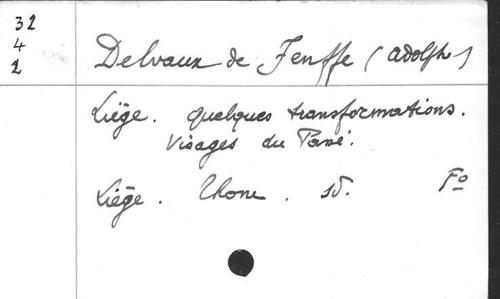 32
4
2
Delvaux de Fenffe (Adolphe)
Liège. Quelques transformations.
Visages du Passé.
Liège. Thone. sd. Fº